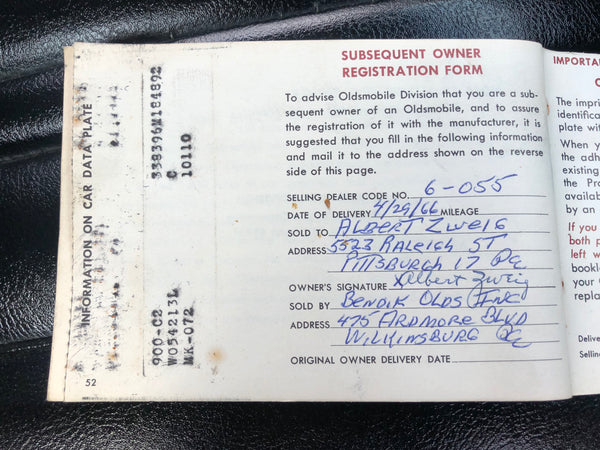 INFORMATION ON CAR DATA PLATE
338396M184892
C
10110
900-C2
W054213L
MK-072
52
SUBSEQUENT OWNER
REGISTRATION FORM
To advise Oldsmobile Division that you are a sub-
sequent owner of an Oldsmobile, and to assure
the registration of it with the manufacturer, it is
suggested that you fill in the following information
and mail it to the address shown on the reverse
side of this page.
SELLING DEALER CODE NO. 6-055
DATE OF DELIVERY 4/29/66 MILEAGE
SOLD TO ALBERT ZWEIG
ADDRESS 5523 RALEIGH ST
PITTSBURGH 17 Pa
OWNER'S SIGNATURE Albert Zweig
SOLD BY BENDIK OLDS INC
ADDRESS 475 ARDMORE BLVD
WILKINSBURG Pa
ORIGINAL OWNER DELIVERY DATE
IMPORTA
The impri
identifica
plate wit
When y
the adh
existing
the Pro
availab
by an
If you
both p
left w
bookle
your
repla
Deliver
Selling